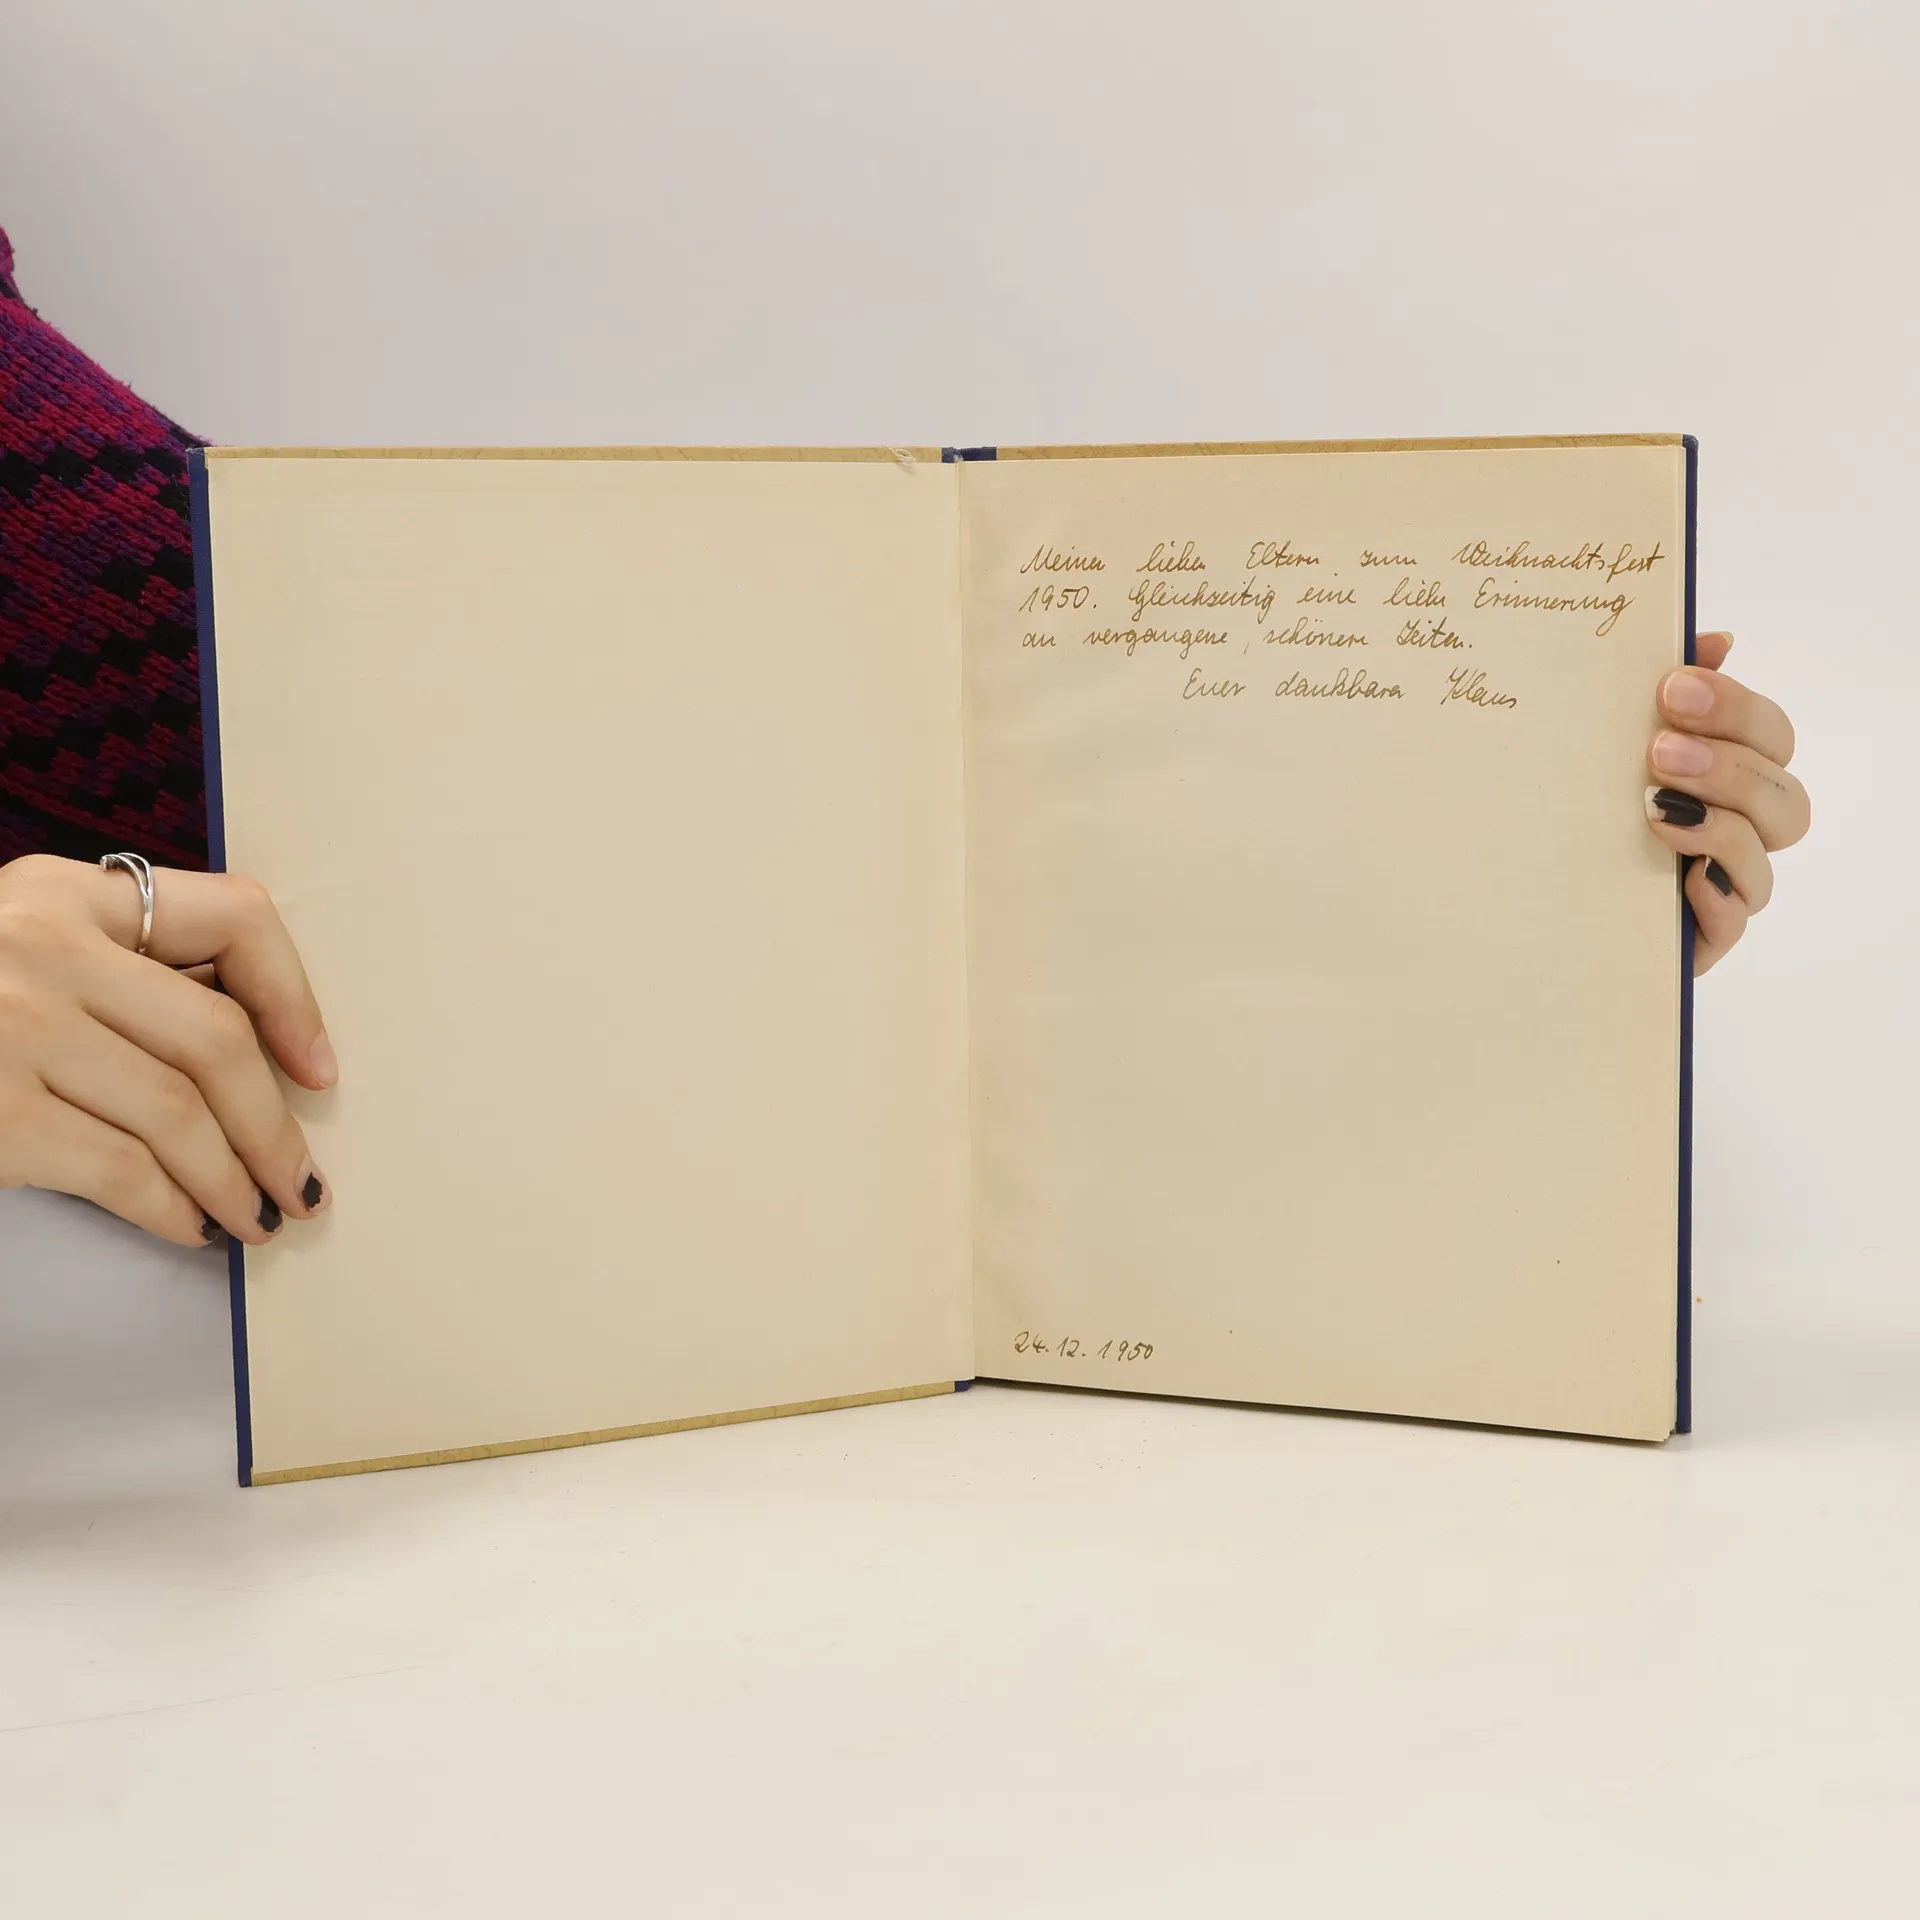 Meinen lieben Eltern zum Weihnachtsfest
1950. Gleichzeitig eine liebe Erinnerung
an vergangene, schönere Zeiten.
Euer dankbarer Klaus
24.12.1950